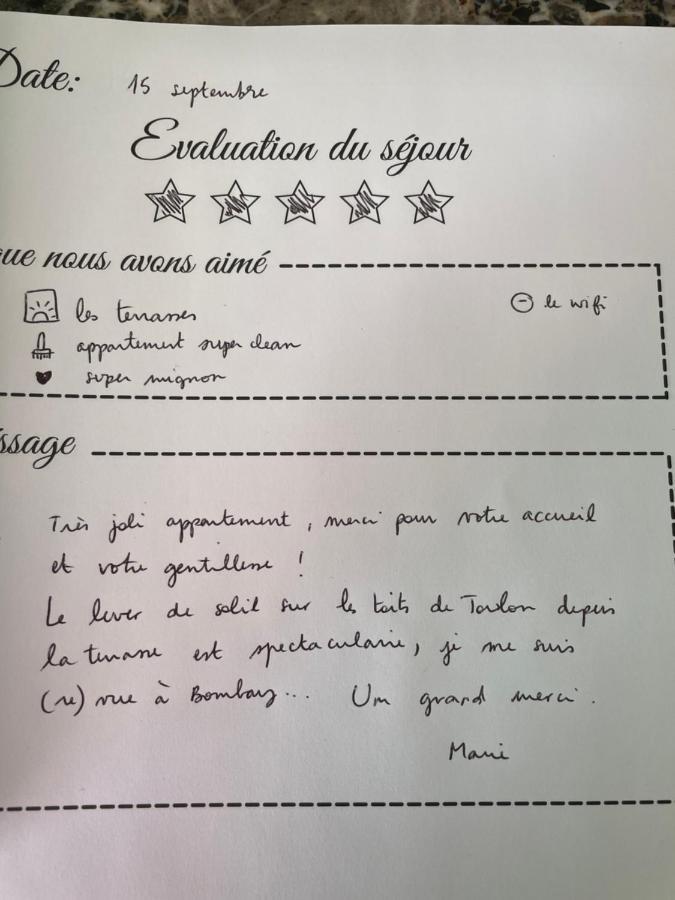 Date: 15 septembre
Evaluation du séjour
que nous avons aimé
les terrasses
⊖ le wifi
appartement super clean
super mignon
ssage
Très joli appartement, merci pour votre accueil
et votre gentillesse !
Le lever de soleil sur les toits de Toulon depuis
la terrasse est spectaculaire, je me suis
(re) vue à Bombay... Un grand merci.
Marie